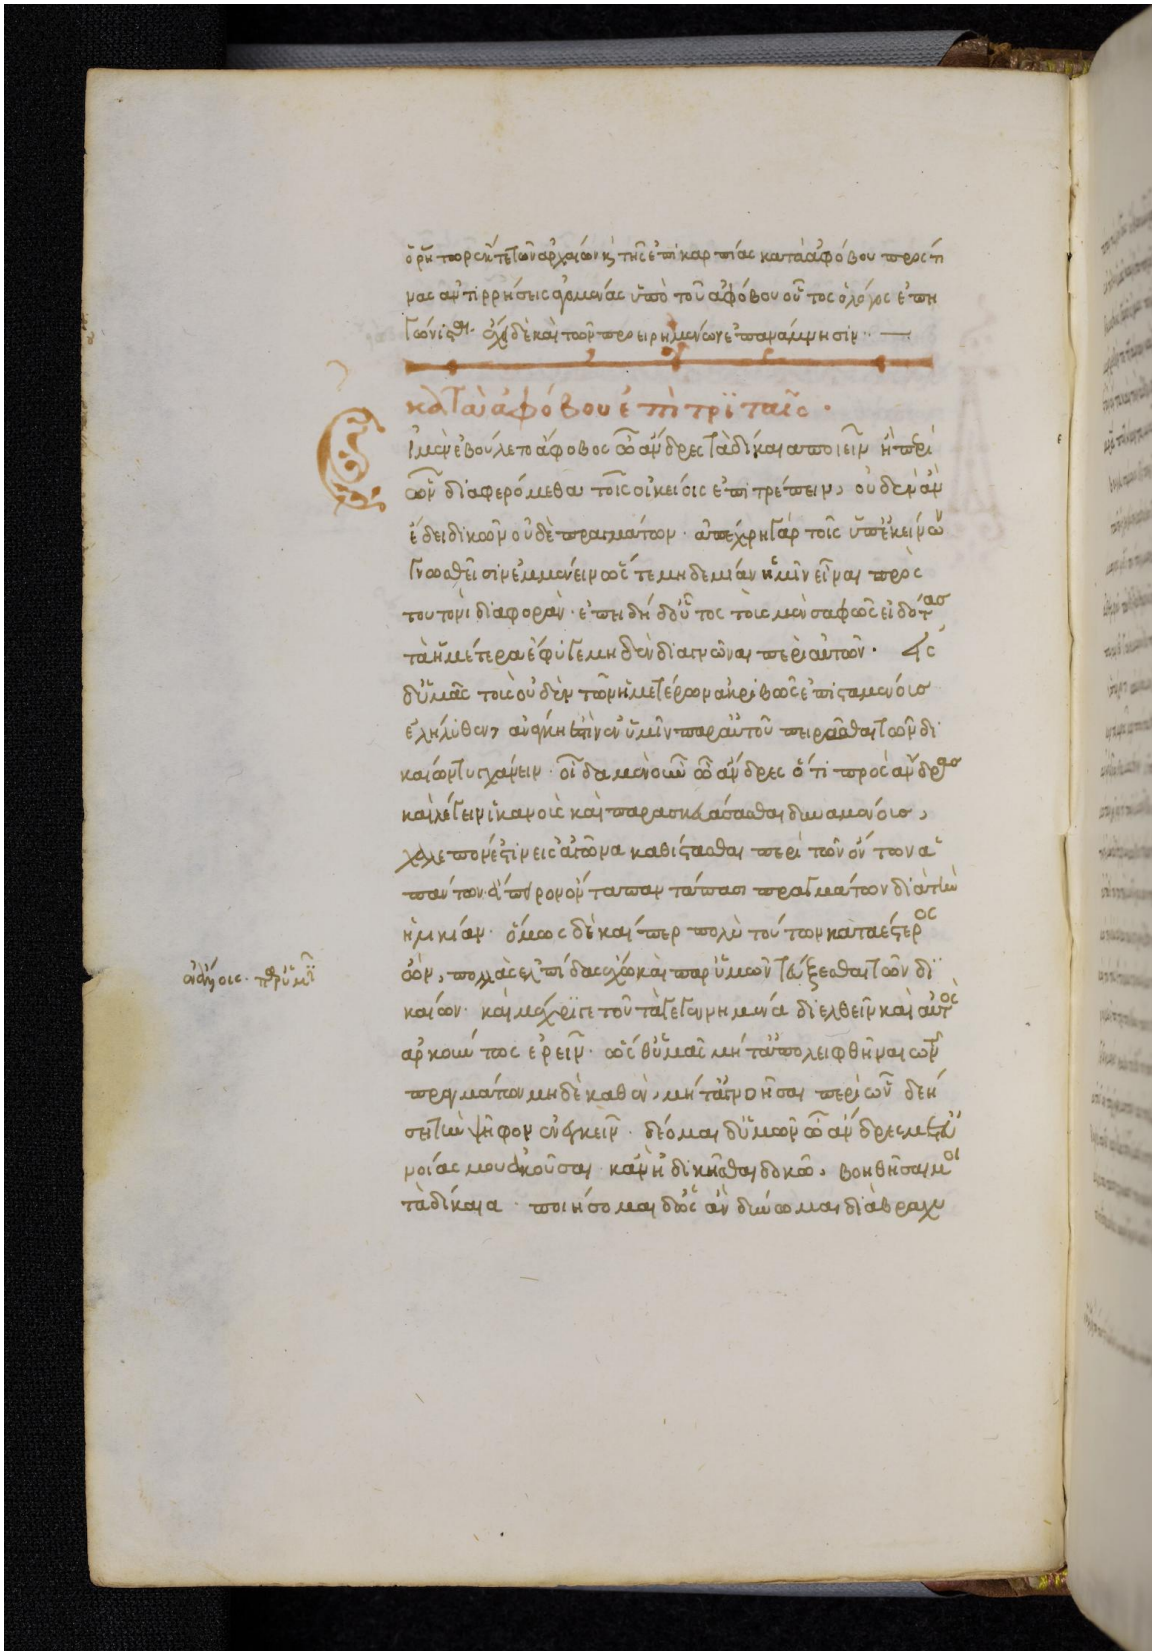 ὁ ῥήτωρ ἔκ τε τῶν ἀρχαίων κ τῆς ἐπικαρπίας κατὰ ἀφόβου πρός τι
νας ἀντιρρήσεις ἀγομένας ὑπὸ τοῦ ἀφόβου οὗτος ὁ λόγος ἐπη
γωνίσθη· ἔχει δὲ καὶ τῶν προειρημένων ἐπανάμνησιν··—
κατὰ ἀφόβου ἐπιτρϊταῖς·
Εἰ μὲν ἐβούλετο ἄφοβος ὦ ἄνδρες τὰ δίκαια ποιεῖν ἢ περὶ
ὧν διαφερόμεθα τοῖς οἰκείοις ἐπιτρέπειν, οὐδὲν ἂν
ἔδει δικῶν οὐδὲ πραγμάτων· ἀπέχρη γὰρ τοῖς ὑπ' ἐκείνων
γνωσθεῖσιν ἐμμένειν ὥστε μηδεμίαν ἡμῖν εἶναι πρὸς
τουτονὶ διαφοράν· ἐπειδὴ δ' οὗτος τοὺς μὲν σαφῶς εἰδότας
τὰ ἡμέτερα ἔφυγε μηδὲν διαγνῶναι περὶ αὐτῶν· εἰς
δ' ὑμᾶς τοὺς οὐδὲν τῶν ἡμετέρων ἀκριβῶς ἐπισταμένους
ἐλήλυθεν, ἀνάγκη ἐστὶν ἐν ὑμῖν παρ' αὐτοῦ πειρᾶσθαι τῶν δι
καίων τυγχάνειν· οἶδα μὲν οὖν ὦ ἄνδρες ὅτι πρὸς ἄνδρας
καὶ λέγειν ἱκανοὺς καὶ παρασκευάσασθαι δυναμένους,
χαλεπόν ἐστιν εἰς ἀγῶνα καθίστασθαι περὶ τῶν ὄντων ἁ
πάντων ἄπειρον ὄντα παντάπασι πραγμάτων διὰ τὴν
ἡλικίαν· ὅμως δὲ καίπερ πολὺ τούτων καταδεέστερος
ὤν, πολλὰς ἐλπίδας ἔχω καὶ παρ' ὑμῶν τεύξεσθαι τῶν δϊ
καίων· καὶ μέχρϊ γε τοῦ τὰ γεγενημένα διελθεῖν καὶ αὐτὸς
ἀρκούντως ἐρεῖν· ὥσθ' ὑμᾶς μήτ' ἀπολειφθῆναι τῶν
πραγμάτων μηδὲ καθ' ἓν, μήτ' ἀγνοῆσαι περὶ ὧν δεή
σει τὴν ψῆφον ἐνεγκεῖν· δέομαι δ' ὑμῶν ὦ ἄνδρες μετ' εὐ
νοίας μου ἀκοῦσαι κἂν ἠδικῆσθαι δοκῶ, βοηθῆσαι μοι
τὰ δίκαια· ποιήσομαι δ' ὡς ἂν δύνωμαι διὰ βραχυ